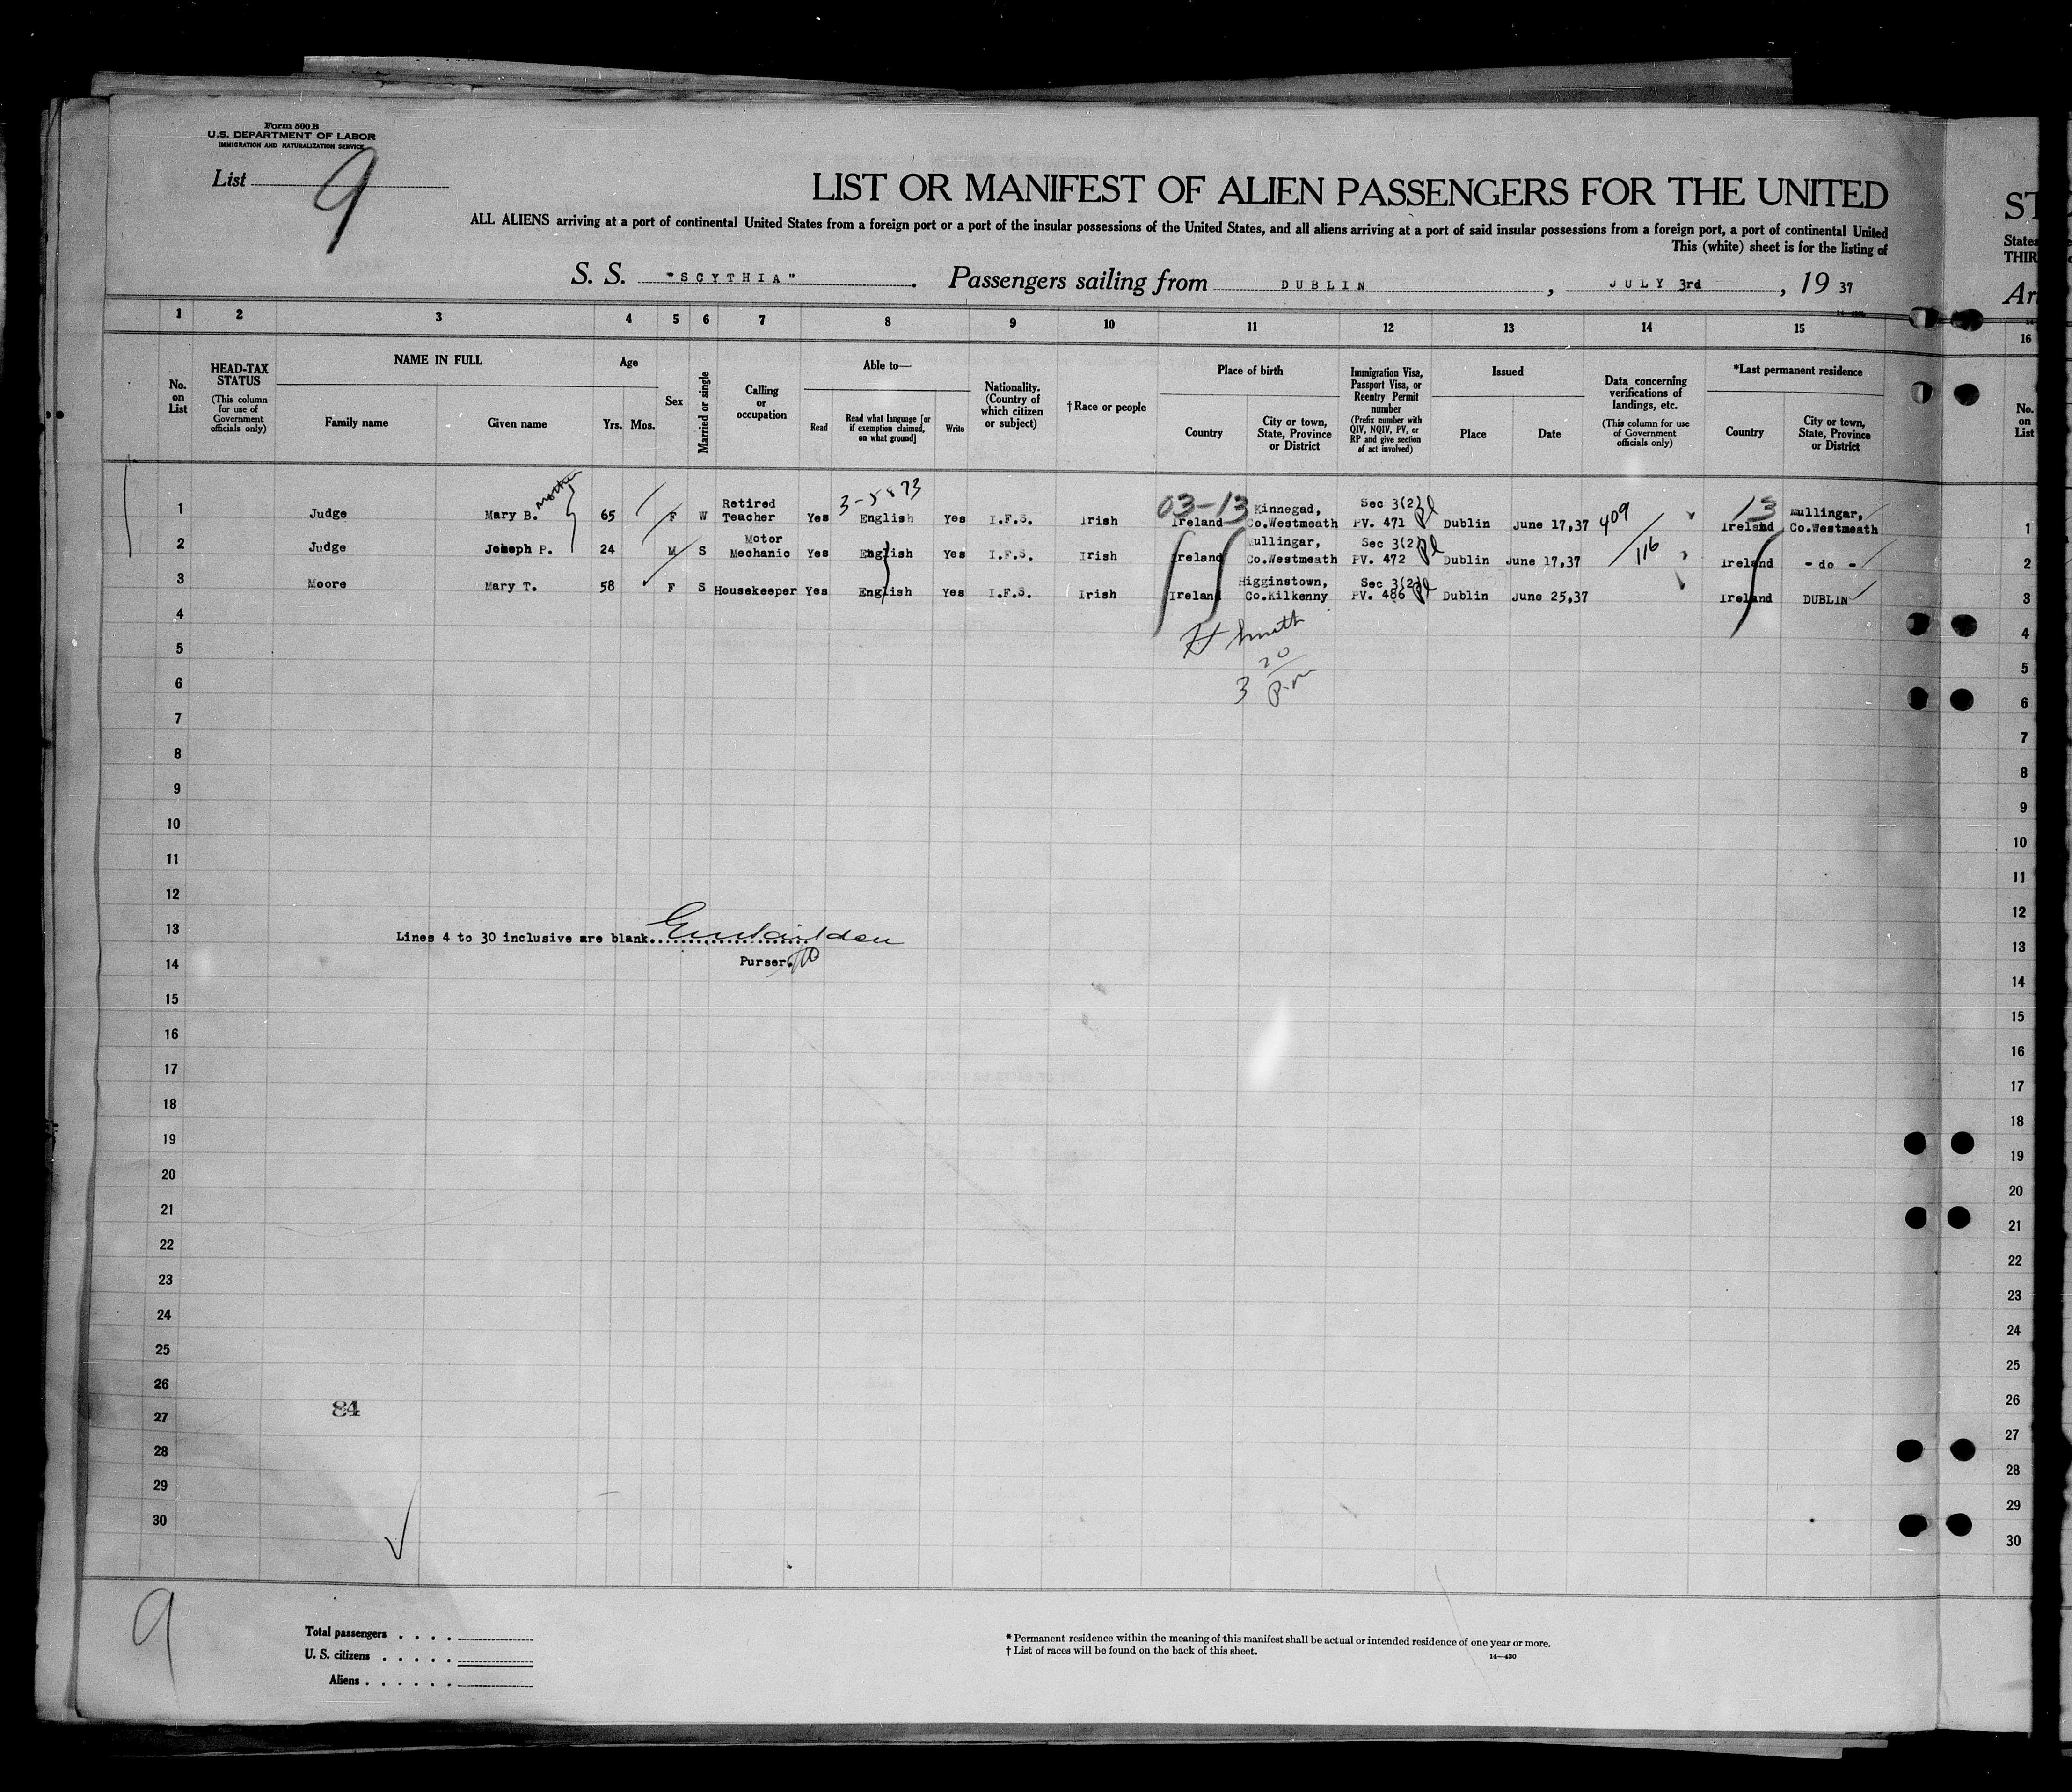 Form 500 B
U.S. DEPARTMENT OF LABOR
IMMIGRATION AND NATURALIZATION SERVICE
List 9
LIST OR MANIFEST OF ALIEN PASSENGERS FOR THE UNITED
ST
ALL ALIENS arriving at a port of continental United States from a foreign port or a port of the insular possessions of the United States, and all aliens arriving at a port of said insular possessions from a foreign port, a port of continental United
States
This (white) sheet is for the listing of
THIR
S. S. "SCYTHIA". Passengers sailing from DUBLIN, JULY 3rd, 19 37
Ar
1 2 3 4 5 6 7 8 9 10 11 12 13 14 15
16
No. on List
HEAD-TAX STATUS
(This column for use of Government officials only)
NAME IN FULL
Family name
Given name
Age
Yrs. Mos.
Sex
Married or single
Calling or occupation
Able to—
Read
Read what language [or if exemption claimed, on what ground]
Write
Nationality. (Country of which citizen or subject)
†Race or people
Place of birth
Country
City or town, State, Province or District
Immigration Visa, Passport Visa, or Reentry Permit number
(Prefix number with QIV, NQIV, PV, or RP and give section of act involved)
Issued
Place
Date
Data concerning verifications of landings, etc.
(This column for use of Government officials only)
*Last permanent residence
Country
City or town, State, Province or District
No. on List
mother
3-5873
03-13
13
409
116
1 Judge Mary B. 65 F W Retired Teacher Yes English Yes I.F.S. Irish Ireland Kinnegad, Co.Westmeath Sec 3(2) PV. 471 Dublin June 17,37 Ireland Mullingar, Co.Westmeath 1
2 Judge Joseph P. 24 M S Motor Mechanic Yes English Yes I.F.S. Irish Ireland Mullingar, Co.Westmeath Sec 3(2) PV. 472 Dublin June 17,37 Ireland - do - 2
3 Moore Mary T. 58 F S Housekeeper Yes English Yes I.F.S. Irish Ireland Higginstown, Co.Kilkenny Sec 3(2) PV. 486 Dublin June 25,37 Ireland DUBLIN 3
4 4
H Smith
5 5
3 20 P.m
6 6
7 7
8 8
9 9
10 10
11 11
12 12
13 13
Lines 4 to 30 inclusive are blank
Purser.
14 14
15 15
16 16
17 17
18 18
19 19
20 20
21 21
22 22
23 23
24 24
25 25
26 26
84
27 27
28 28
29 29
30 30
9
Total passengers . . . .
U. S. citizens . . . . .
Aliens . . . . . .
* Permanent residence within the meaning of this manifest shall be actual or intended residence of one year or more.
† List of races will be found on the back of this sheet.
14—430